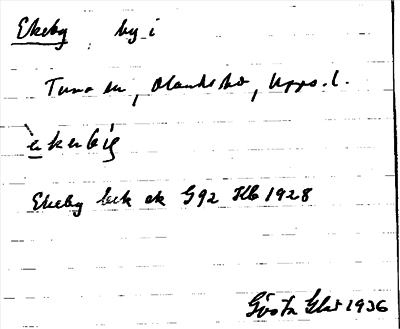 Ekeby by i
Tuna sn, Olands hd, Upps. l.
èkɐbig
Ekeby beck ek G92 Hb 1928
Gösta 1936